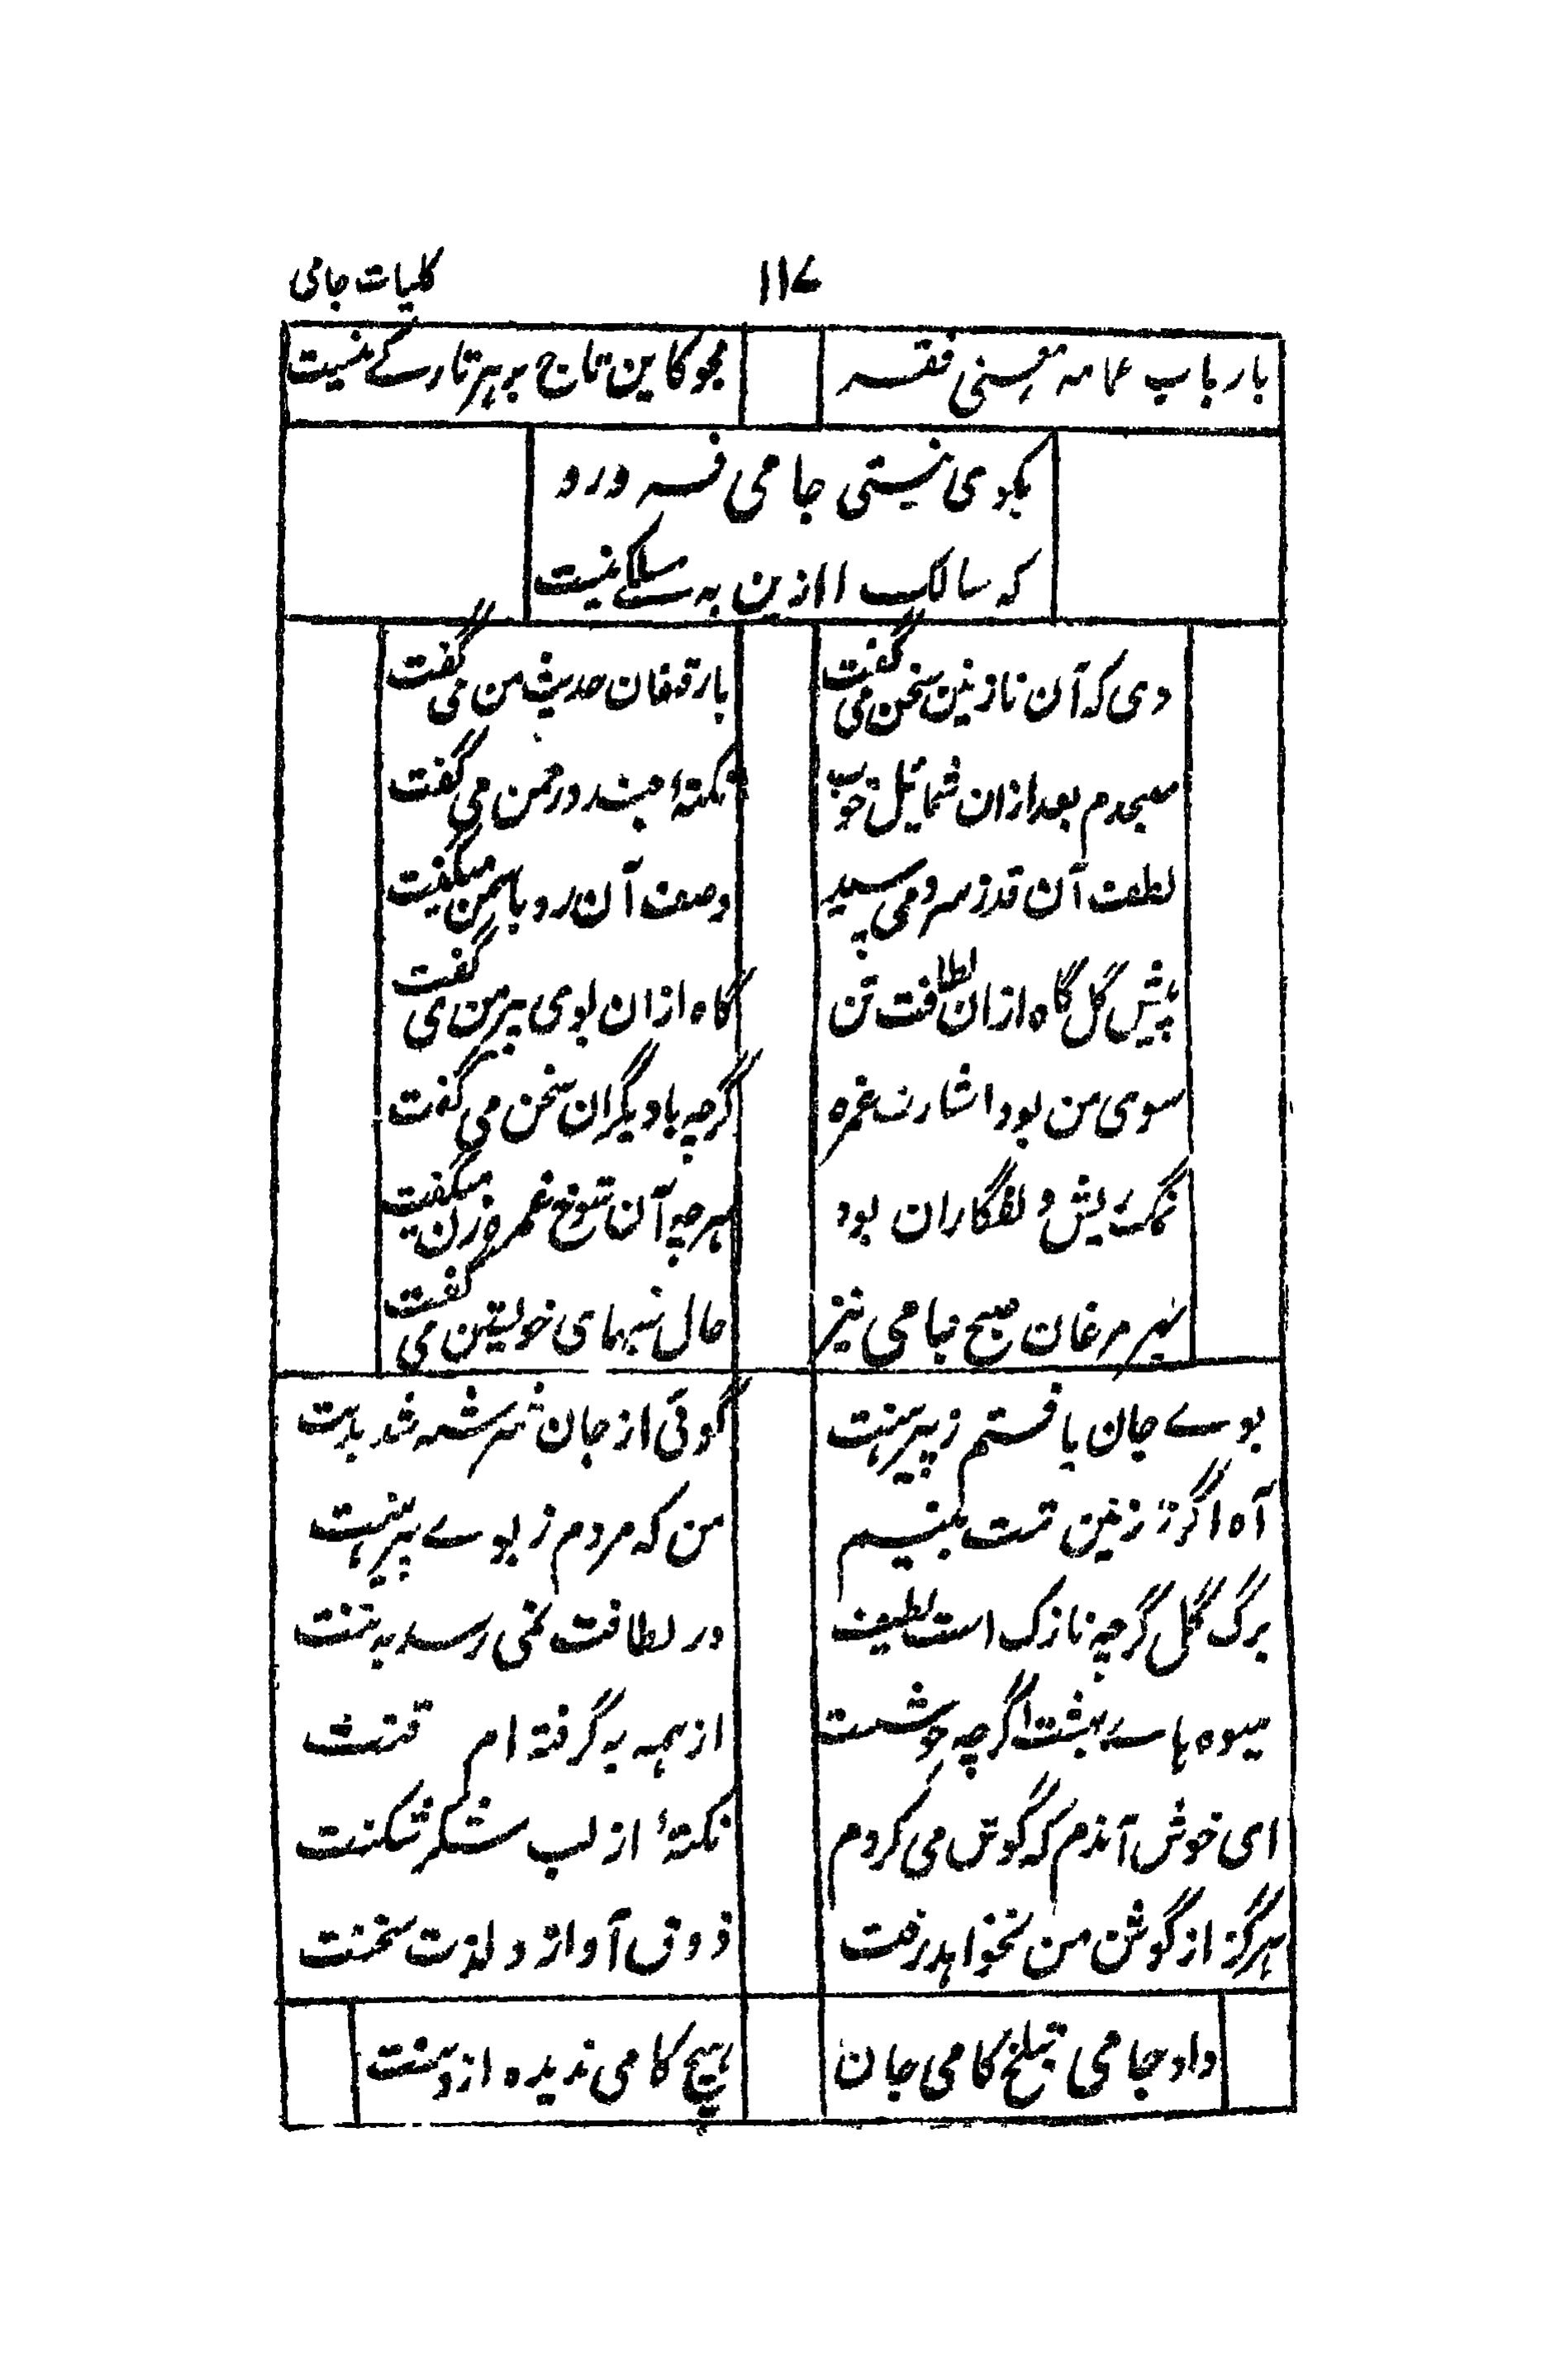 ۱۱۷
کلیات جامی
بارباب عمامه معنی فقر
مجو کاین تاج بر هر تارکے نیست
بکوی نیستی جامی فرو رو
که سالک را ازین به مسلکے نیست
دی که آن نازنین سخن می گفت
بارقیبان حدیث من می گفت
صبحدم بعد ازان شمائل خوب
نکتهٔ چند در چمن می گفت
لطف آن قد ز سرو می پرسید
وصف آن رو باسمن میگفت
پیش گل گاه ازان لطافت تن
گاه ازان بوی پیرهن می گفت
سوی من بود اشارت غمزه
گرچه با دیگران سخن می گفت
نمک ریش دلفگاران بود
هرچه آن شوخ غمزه زن میگفت
مرغان صبح جامی نیز
حال شبهای خویشتن می گفت
بوے جان یافتم ز پیرهنت
گوئی از جان سرشته شد بدنت
آه اگر نازنین تنت بینم
من که مردم ز بوے پیرهنت
برگ گل گرچه نازک است لطیف
در لطافت نمی رسد به تنت
میوه هاے بهشت اگرچه خوشست
از همه به گرفته ام ذقنت
ای خوش آندم که گوش می کردم
نکتهٔ از لب شکر شکنت
هرگز از گوش من نخواهد رفت
ذوق آواز و لذت سخنت
داد جامی بتلخ کامی جان
هیچ کامی ندیده از دهنت